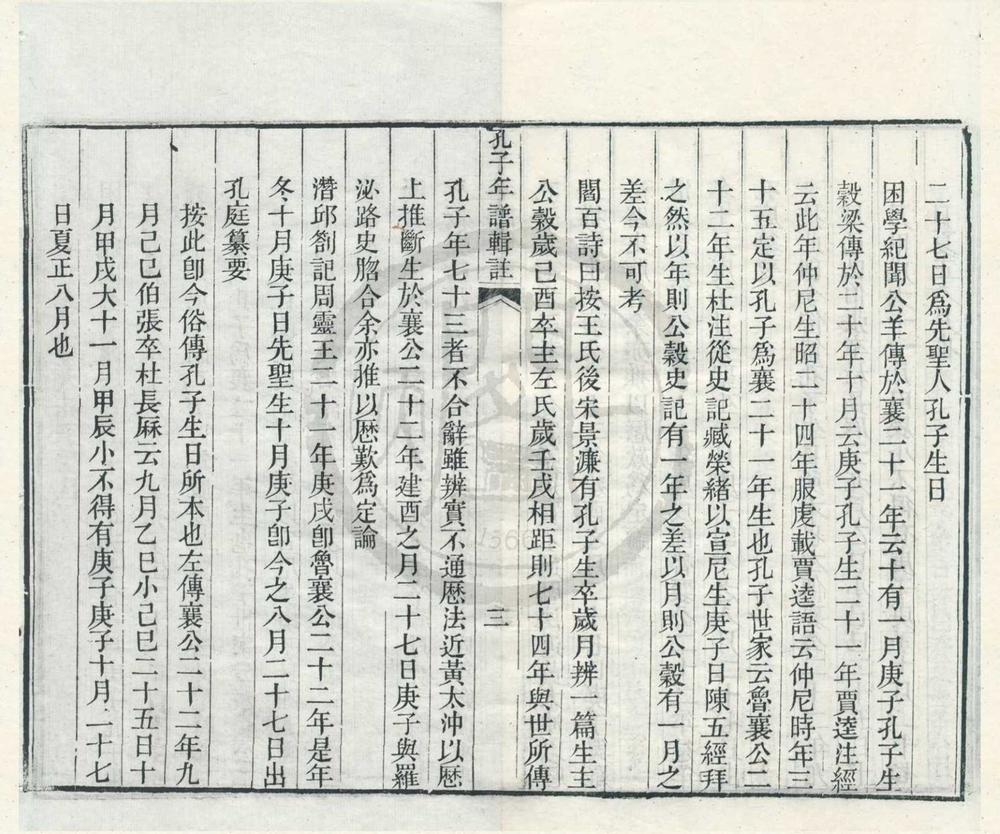 二十七日爲先聖人孔子生日
困學紀聞公羊傳於襄二十一年云十有一月庚子孔子生
穀梁傳於二十年十月云庚子孔子生二十一年賈逵注經
云此年仲尼生昭二十四年服虔載賈逵語云仲尼時年三
十五定以孔子爲襄二十一年生也孔子世家云魯襄公二
十二年生杜注從史記臧榮緒以宣尼生庚子日陳五經拜
之然以年則公穀史記有一年之差以月則公穀有一月之
差今不可考
閻百詩曰按王氏後宋景濂有孔子生卒歲月辨一篇生主
公穀歲己酉卒主左氏歲壬戌相距則七十四年與世所傳
孔子年譜輯註
三
孔子年七十三者不合辭雖辨實不通厯法近黃太沖以厯
上推斷生於襄公二十二年建酉之月二十七日庚子與羅
泌路史脗合余亦推以厯歎爲定論
潛邱劄記周靈王二十一年庚戌卽魯襄公二十二年是年
冬十月庚子日先聖生十月庚子卽今之八月二十七日出
孔庭纂要
按此卽今俗傳孔子生日所本也左傳襄公二十二年九
月己巳伯張卒杜長厤云九月乙巳小己巳二十五日十
月甲戌大十一月甲辰小不得有庚子庚子十月二十七
日夏正八月也